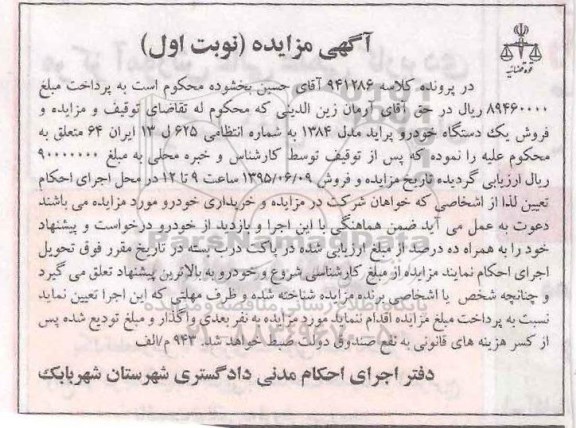 قوه قضائیه
آگهی مزایده (نوبت اول)
در پرونده کلاسه ۹۴۱۲۸۶ آقای حسین بخشوده محکوم است به پرداخت مبلغ
۸۹۴۶۰۰۰۰ ریال در حق آقای نرمان زین الدینی که محکوم له تقاضای توقیف و مزایده و
فروش یک دستگاه خودرو پراید مدل ۱۳۸۴ به شماره انتظامی ۶۲۵ ل ۱۳ ایران ۶۴ متعلق به
محکوم علیه را نموده که پس از توقیف توسط کارشناس و خبره محلی به مبلغ ۹۰۰۰۰۰۰۰
ریال ارزیابی گردیده تاریخ مزایده و فروش ۱۳۹۵/۰۶/۰۹ ساعت ۹ تا ۱۲ در محل اجرای احکام
تعیین لذا از اشخاصی که خواهان شرکت در مزایده و خریداری خودرو مورد مزایده می باشند
دعوت به عمل می آید ضمن هماهنگی با این اجرا و بازدید از خودرو درخواست و پیشنهاد
خود را به همراه ده درصد از مبلغ ارزیابی شده در پاکت درب بسته در تاریخ مقرر فوق تحویل
اجرای احکام نمایند مزایده از مبلغ کارشناسی شروع و خودرو به بالاترین پیشنهاد تعلق می گیرد
و چنانچه شخص یا اشخاصی برنده مزایده شناخته شده و ظرف مهلتی که این اجرا تعیین نماید
نسبت به پرداخت مبلغ مزایده اقدام ننماید مورد مزایده به نفر بعدی واگذار و مبلغ تودیع شده پس
از کسر هزینه های قانونی به نفع صندوق دولت ضبط خواهد شد. ۹۴۳ م/الف
دفتر اجرای احکام مدنی دادگستری شهرستان شهربابک